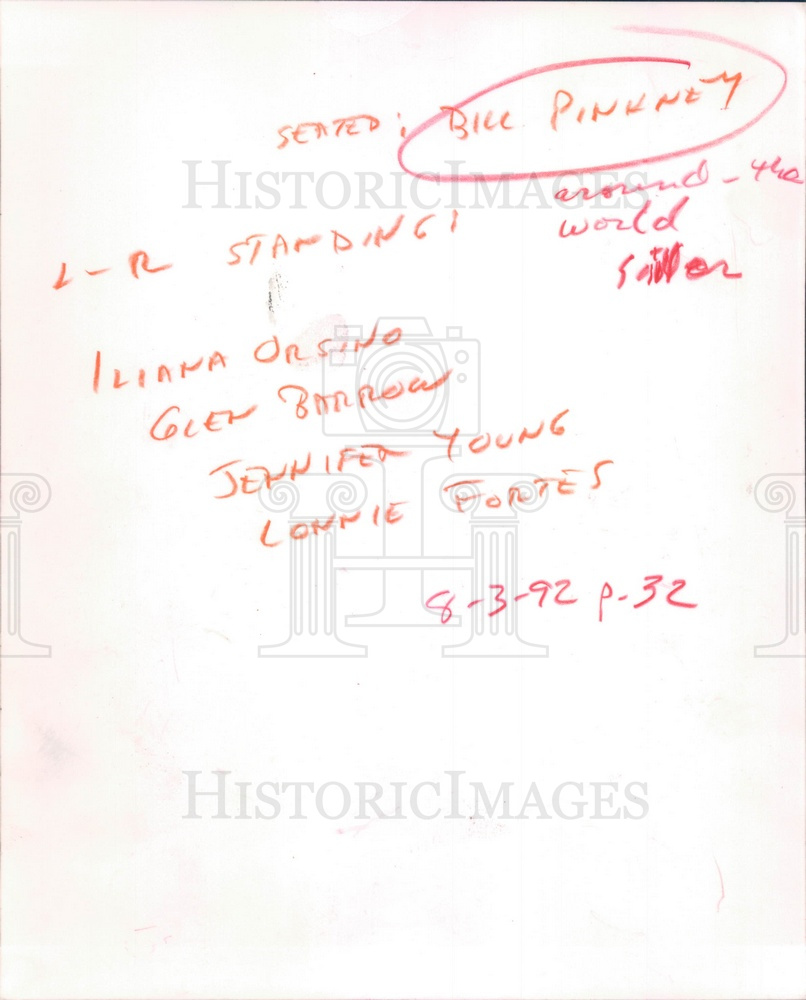 SEATED: BILL PINKNEY
around-the
world
sailor
L-R STANDING:
ILIANA ORSINO
GLEN BARROW
JENNIFER YOUNG
LONNIE FORTES
8-3-92 p-32
HISTORICIMAGES
HISTORICIMAGES